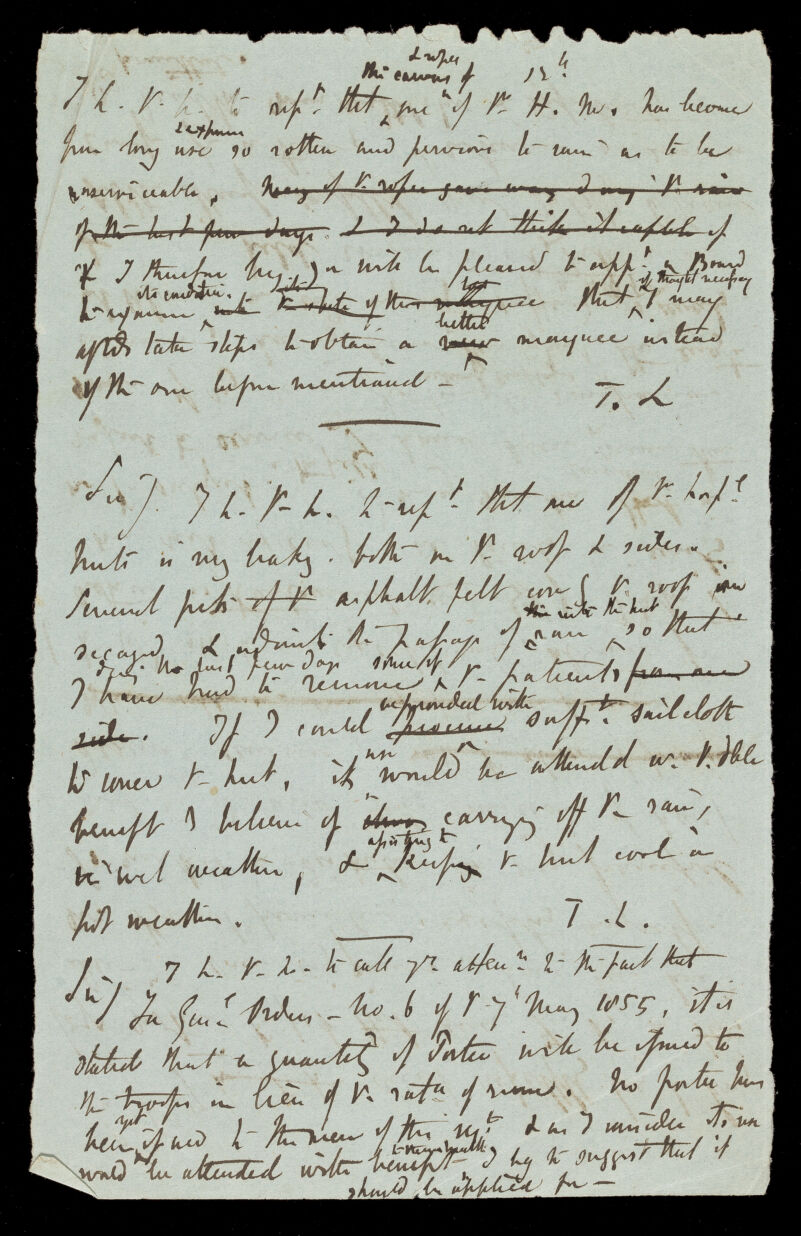 & ropes
the canvas of 12th
I h. t. h. to rept that one of the H. M. has become
& exposure
from long use so rotten and pervious to rain as to be
unserviceable. Many of the ropes gave way during the rain
of the last few days. & I do not think it capable of
I therefore beg you will be pleased to appt a Board
its condition. if thought necessary
to examine into the state of this marquee that I may
better
aftds take steps to obtain a new marquee instead
of the one before mentioned –
T. L
Sir/. I h. the h. to rept that one of the hospl
huts is very leaky. both on the roof & sides.
Several parts of the asphalt felt covg the roof are
into the hut
decayed & admits the passage of rain so that
during the last few days some of
I have had to remove the patients from one
side. If I could procure sufft sailcloth
be provided with
to cover the hut, its use would be attended w. dble
benefit I believe of carrying off the rain,
assisting to
in wet weather, & keeping the hut cool in
hot weather.
T. L.
Sir/ I h. the h. to call yr attenn to the fact that
In Genl Orders – No. 6 of the 7th May 1855, it is
stated that a quantity of Porter will be issued to
the troops in lieu of the ratn of rum. No porter has
yet
been issued to the men of this regt & as I consider its use
to their health
would be attended with benefit I beg to suggest that it
should be applied for –